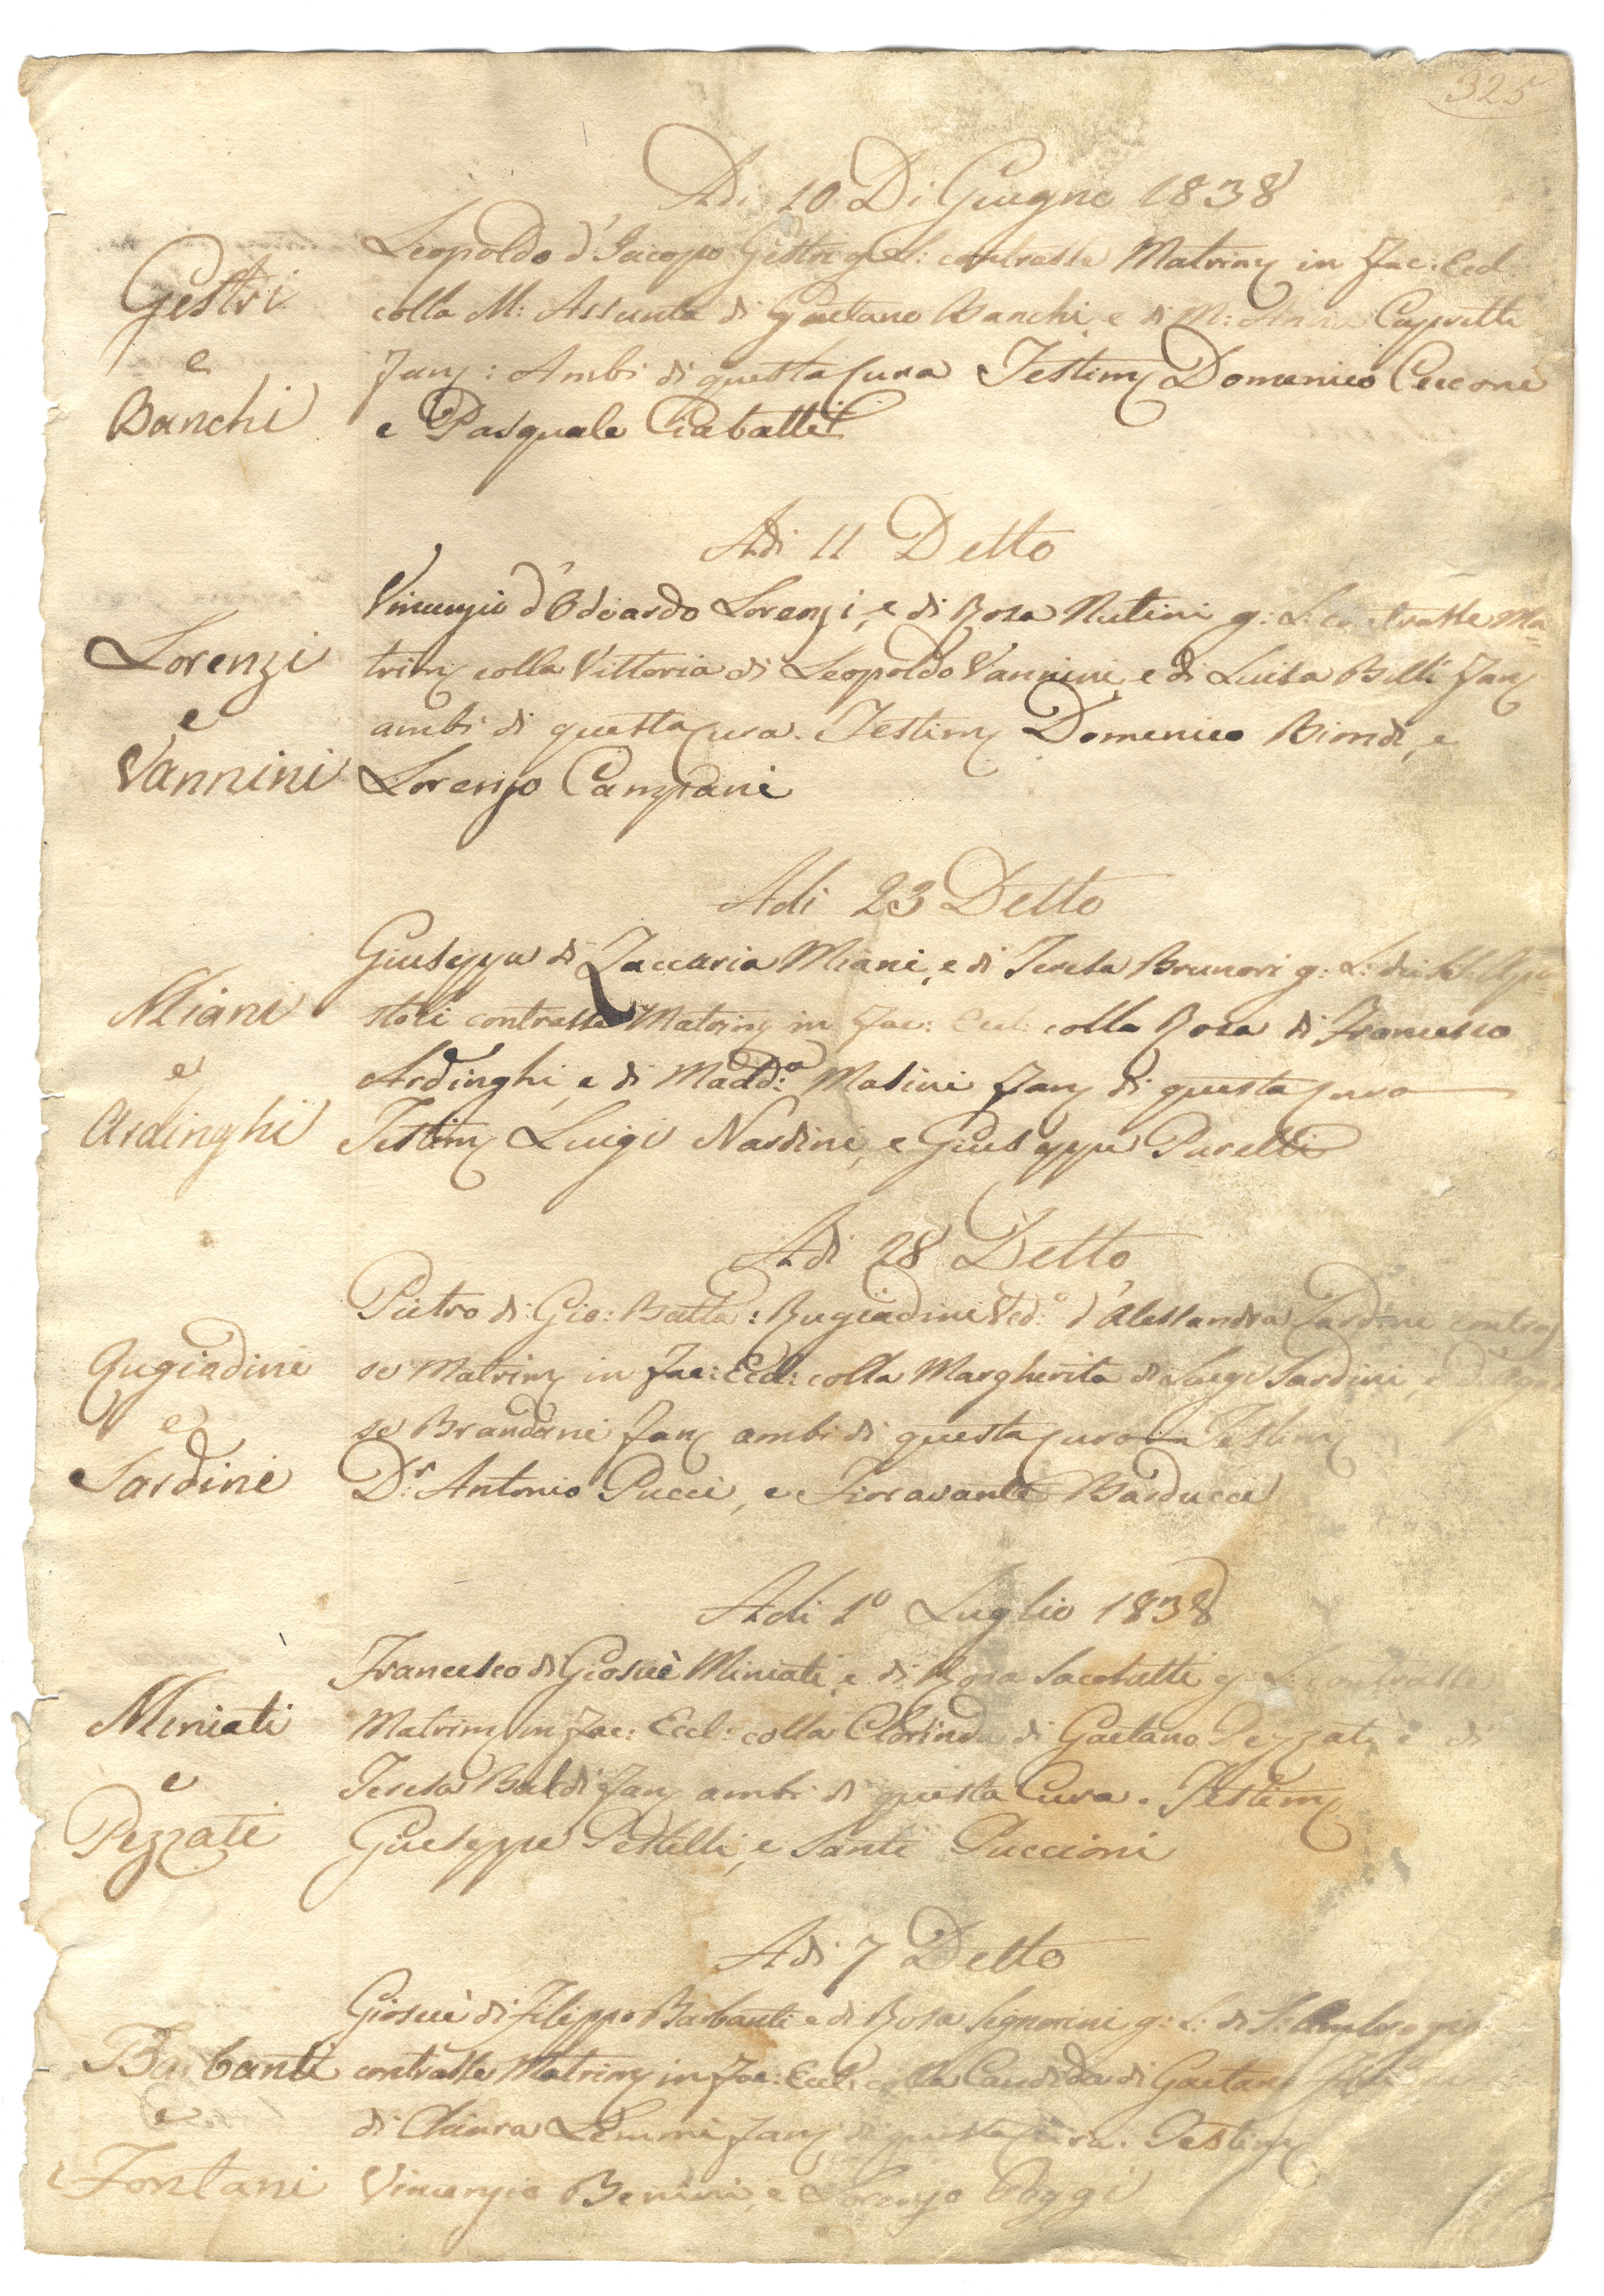 325
Adi 10 Di Giugno 1838
Leopoldo d'Iacopo Gestri g: L: contrasse Matrim in Fac: Eccl:
Gestri
colla M: Assunta di Gaetano Banchi, e di M: Anna Capretti
e
Fan: Ambi di questa Cura Testim Domenico Ceccone
Banchi
e Pasquale Ciabatti
Adi 11 Detto
Vincenzio d'Odoardo Lorenzi, e di Rosa Nutini g: L: contratte Ma=
Lorenzi
trim colla Vittoria di Leopoldo Vannini, e di Luisa Belli Fan
e
ambi di questa Cura. Testim Domenico Biondi, e
Vannini
Lorenzo Campani
Adi 23 Detto
Giuseppe di Zaccaria Miani, e di Teresa Brunori g: L: dei SS. Apo=
Miani
stoli contrasse Matrim in Fac: Eccl: colla Rosa di Francesco
e
Ardinghi, e di Madd:a Masini Fan di questa Cura
Ardinghi
Testim Luigi Nardini, e Giuseppe Paretti
Adi 28 Detto
Pietro di Gio: Batta: Rugiadini Ved:o d'Alessandra contras
Rugiadini
se Matrim in Fac: Eccl: colla Margherita di Luigi Sardini, e
e
se Brandani Fan ambi di questa Cura Testim
Sardini
D:r Antonio Pucci, e Fioravante Barducci
Adi 1o Luglio 1838
Francesco di Giosuè Miniati, e di Rosa Sacchetti g: L: contrasse
Miniati
Matrim in Fac: Eccl: colla Clorinda di Gaetano Pezzati, e di
e
Teresa Baldi Fan ambi di questa Cura. Testim
Pezzati
Giuseppe Pestelli, e Santi Puccioni
Adi 7 Detto
Giosuè di Filippo Barbanti e di Rosa Signorini g: L: di S: Ambrogio
Barbanti
contrasse Matrim in Fac: Eccl: colla Candida di Gaetano
e
di Chiara Lemmi Fan di questa Cura. Testim
Fontani
Vincenzio Benini, e Lorenzo Poggi